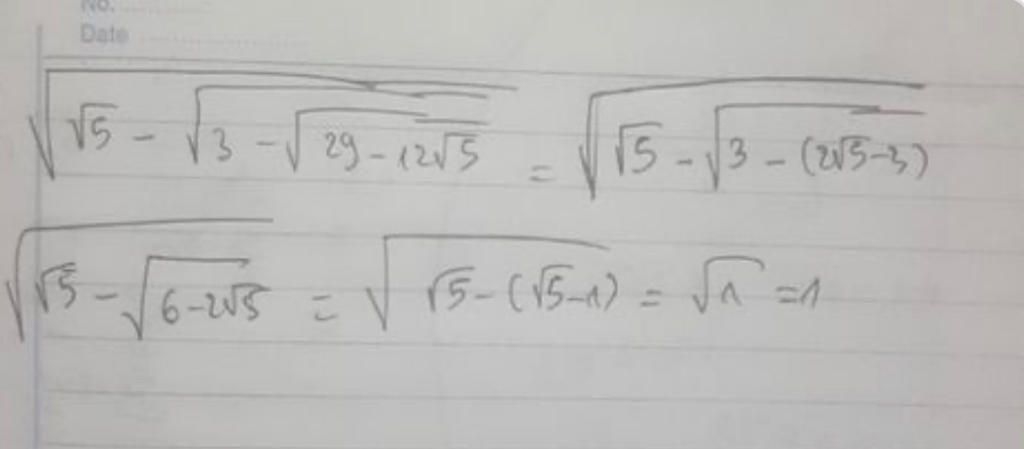 No.
Date
√(√5 - √(3 - √(29 - 12√5))) = √(√5 - √(3 - (2√5 - 3)))
√(√5 - √(6 - 2√5)) = √(√5 - (√5 - 1)) = √1 = 1